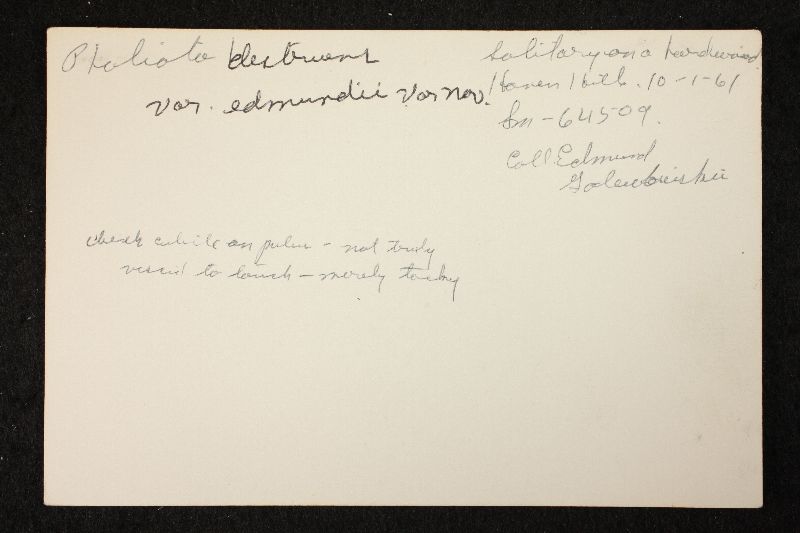 Pholiota destruens
var. edmundii var nov.
Solitary on a hardwood
Haven Hill. 10-1-61
Sm-64509.
Coll. Edmund
check cuticle on pileus - not truly
viscid to touch - merely tacky